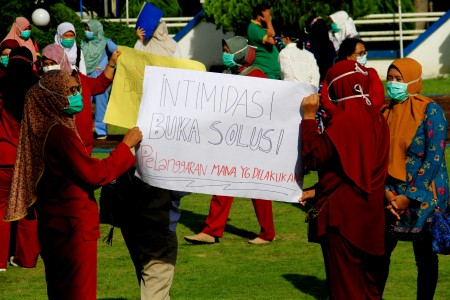 INTIMIDASI
BUKA SOLUSI
PELANGGARAN MANA YG DILAKUKAN